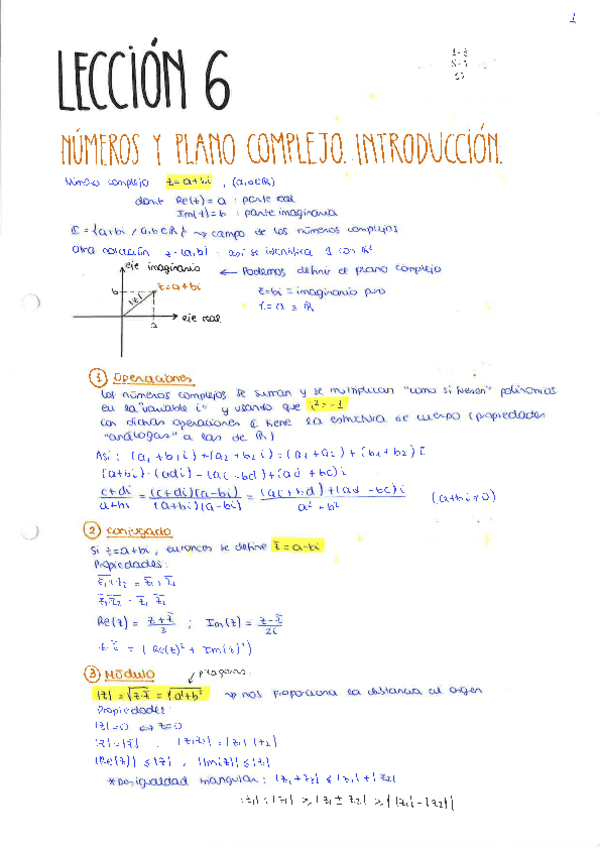 1
LECCIÓN 6
NÚMEROS Y PLANO COMPLEJO. INTRODUCCIÓN.
Número complejo z=a+bi, (a,b∈ℝ)
donde Re(z)=a : parte real
Im(z)=b : parte imaginaria
ℂ={a+bi / a,b∈ℝ} → campo de los números complejos
Otra notación z=(a,b) : así se identifica ℂ con ℝ²
eje imaginario ← Podemos definir el plano complejo
b z=a+bi z=bi = imaginario puro
|z|
a eje real
① Operaciones
Los números complejos se suman y se multiplican "como si fuesen" polinomios
en la "variable i" y usando que i²=-1
Con dichas operaciones ℂ tiene la estructura de cuerpo (propiedades
"análogas" a las de ℝ)
Así : (a₁+b₁i)+(a₂+b₂i)=(a₁+a₂)+(b₁+b₂)i
(a+bi)·(c+di)=(ac-bd)+(ad+bc)i
(c+di)/(a+bi) = (c+di)(a-bi)/(a+bi)(a-bi) = (ac+bd)+(ad-bc)i/a²+b² (a+bi≠0)
② Conjugado
Si z=a+bi, entonces se define z̄=a-bi
Propiedades:
Re(z)=(z+z̄)/2 ; Im(z)=(z-z̄)/2i
z·z̄ = (Re(z)²+Im(z)²)
③ Módulo
|z|=√z·z̄=√a²+b² → nos proporciona la distancia al origen
Propiedades:
|z|=0 ⇔ z=0
|z|=|z̄| , |z₁z₂|=|z₁||z₂|
|Re(z)|≤|z| , |Im(z)|≤|z|
*Desigualdad triangular: |z₁+z₂|≤|z₁|+|z₂|
|z₁|+|z₂|≥|z₁±z₂|≥||z₁|-|z₂||